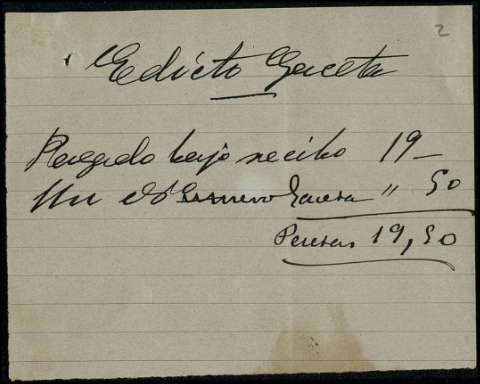 2
Edicto Gaceta
Pagado bajo recibo 19 —
Un Gaceta " 50
Pesetas 19,50